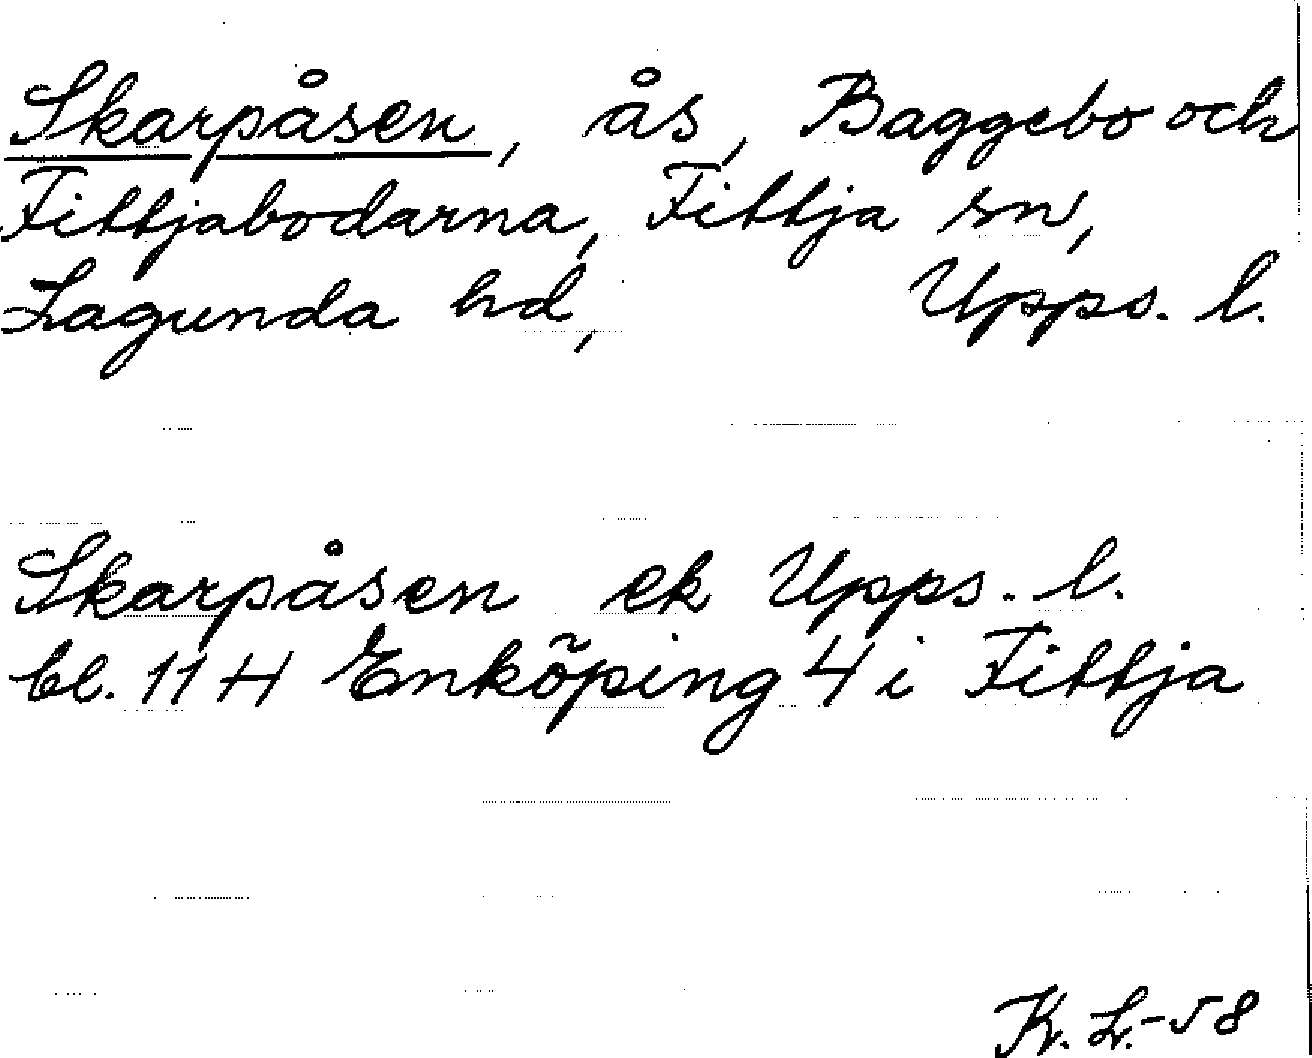 Skarpåsen, ås, Baggebo och
Fittjabodarna, Fittja sn,
Lagunda hd, Upps. l.
Skarpåsen ek Upps. l.
bl. 114 Enköping 4 i Fittja
K. L.-58